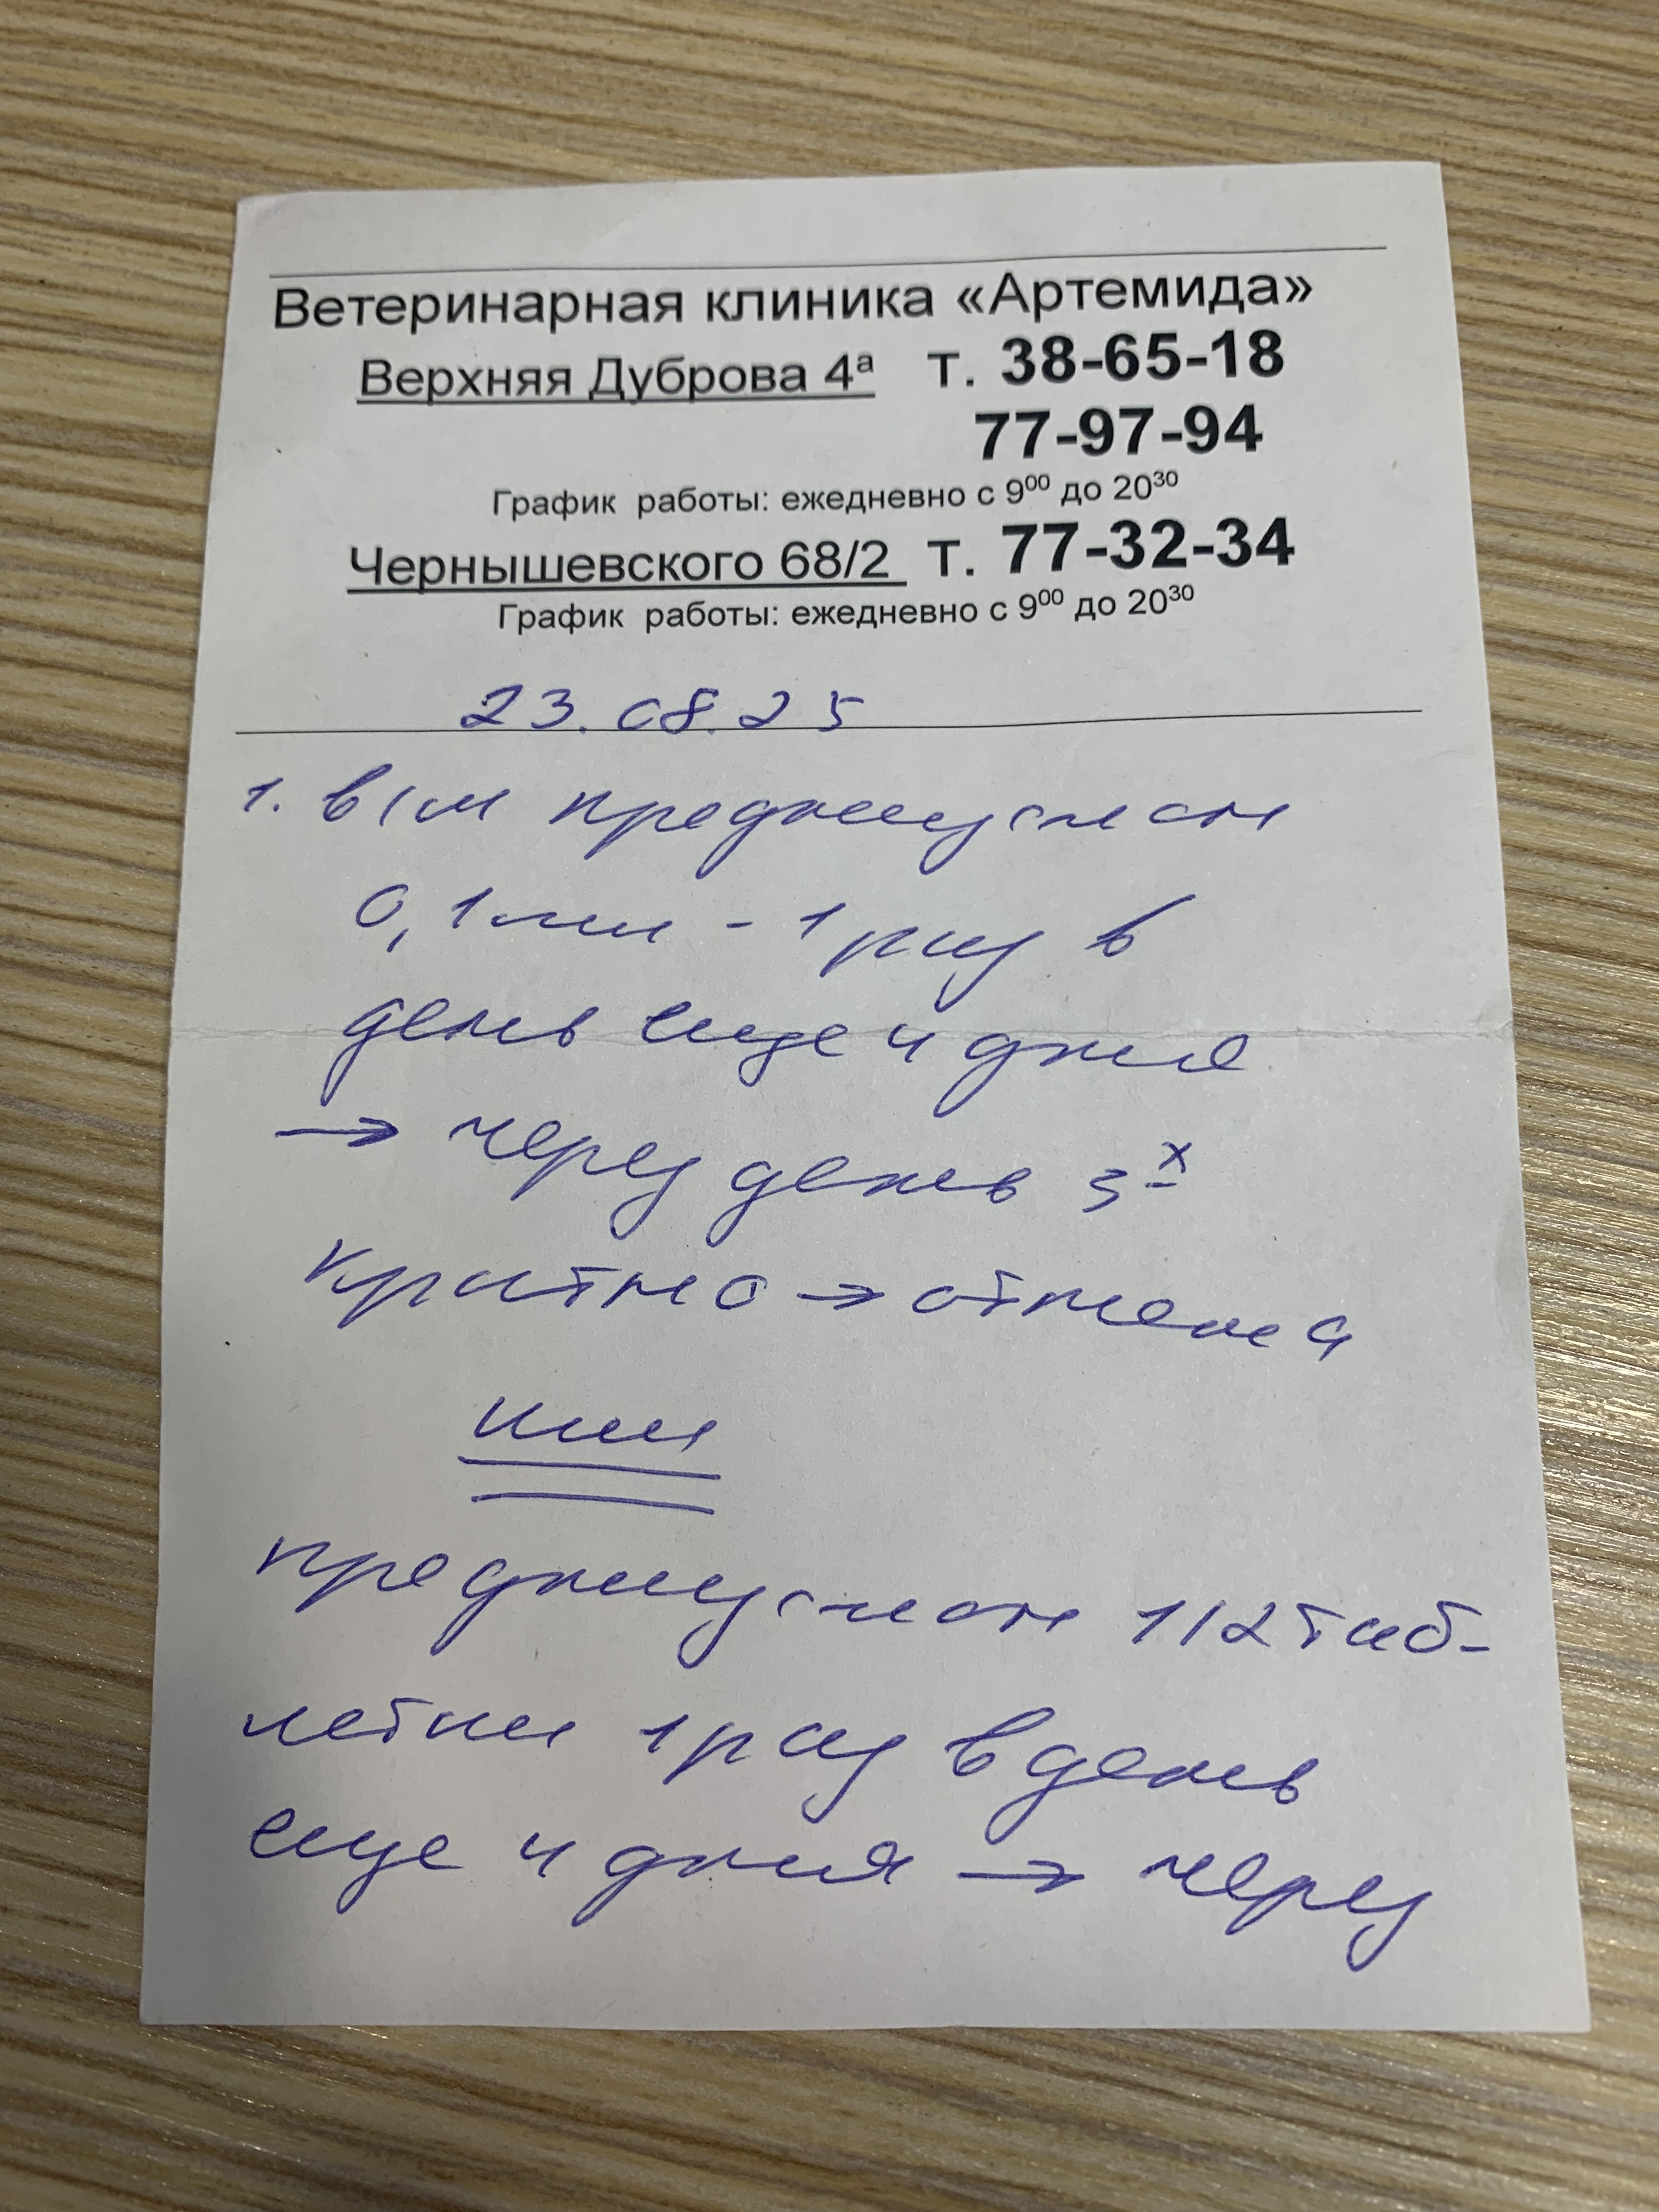 Ветеринарная клиника «Артемида»
Верхняя Дуброва 4ª т. 38-65-18
77-97-94
График работы: ежедневно с 9⁰⁰ до 20³⁰
Чернышевского 68/2 т. 77-32-34
График работы: ежедневно с 9⁰⁰ до 20³⁰
23.08.25
1. в/м преднизолон
0,1 мл - 1 раз в
день еще 4 дня
→ через день 3ˣ
кратно → отмена
или
преднизолон 1/2 таб-
летки 1 раз в день
еще 4 дня → через